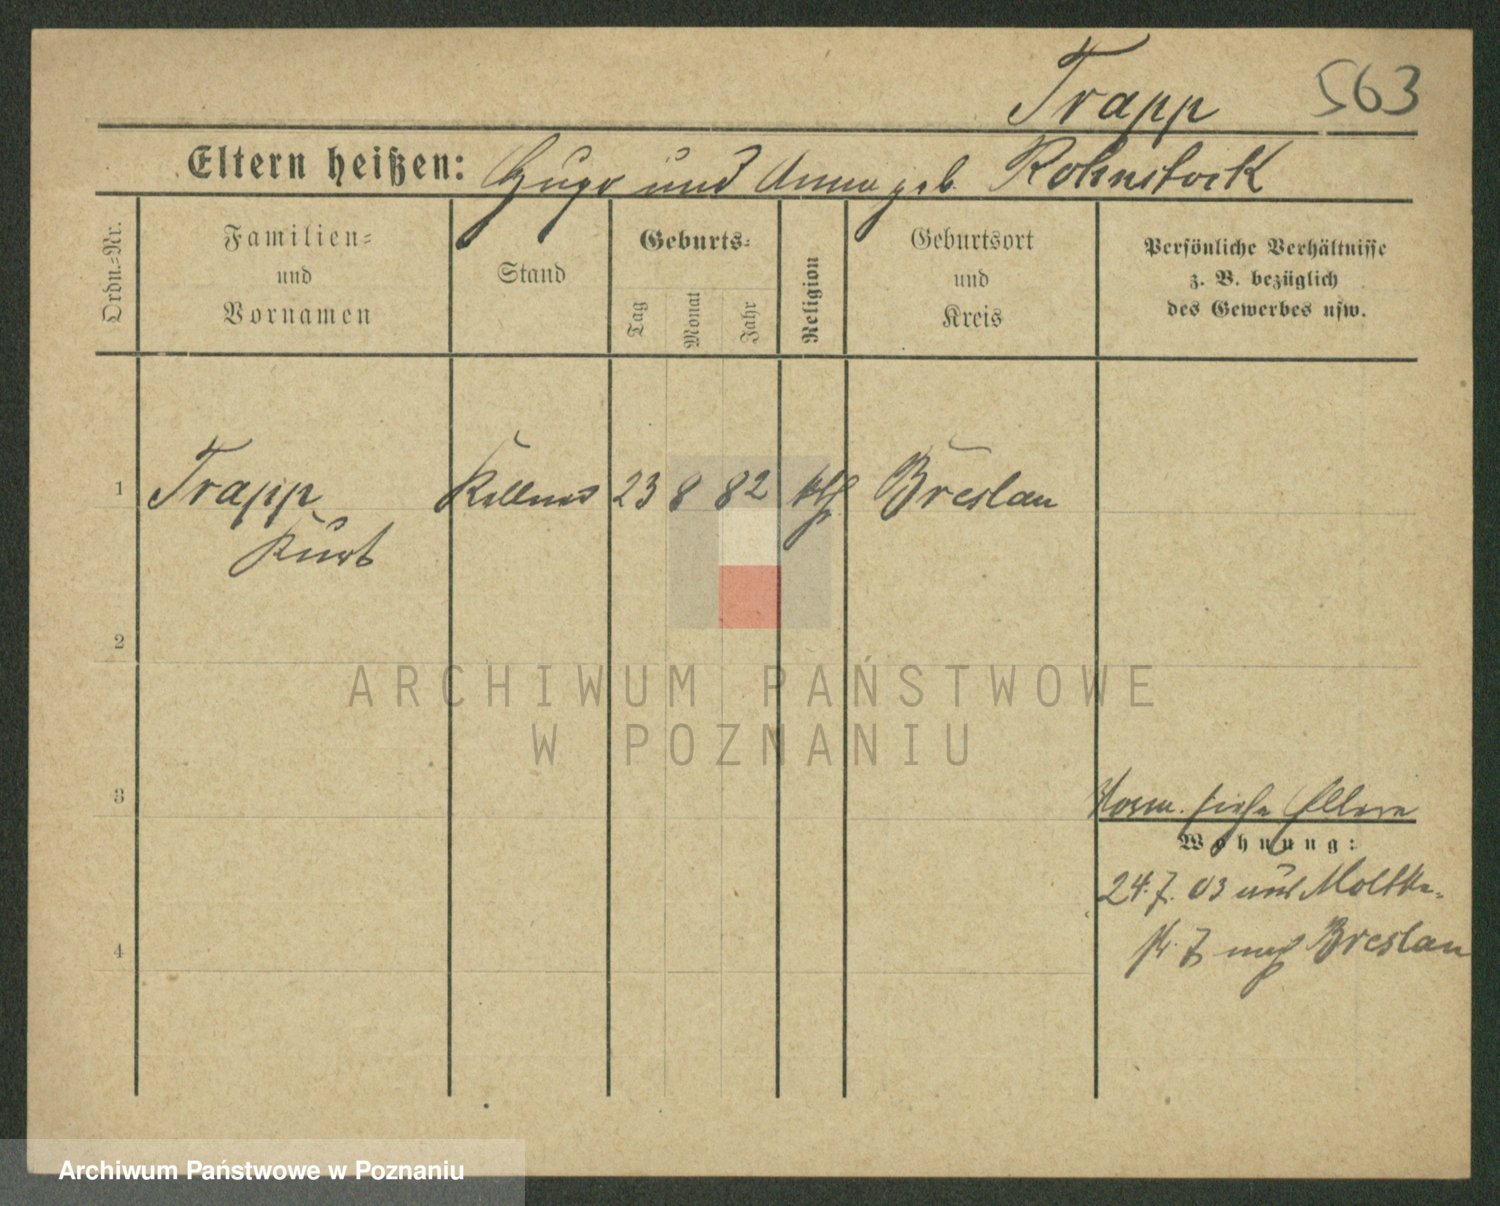 Trapp 563
Eltern heißen: Hugo und Anna geb. Rohnstock
Ordn.-Nr.
Familien- und Vornamen
Stand
Geburts-
Tag
Monat
Jahr
Religion
Geburtsort und Kreis
Persönliche Verhältnisse z. B. bezüglich des Gewerbes usw.
1 Trapp Kellner 23 8 82 kth Breslau
Kurt
2
3
Vorm. siehe Eltern
Wohnung:
24.7.03 aus Moltke-
str. 7 nach Breslau
4
ARCHIWUM PAŃSTWOWE
W POZNANIU
Archiwum Państwowe w Poznaniu